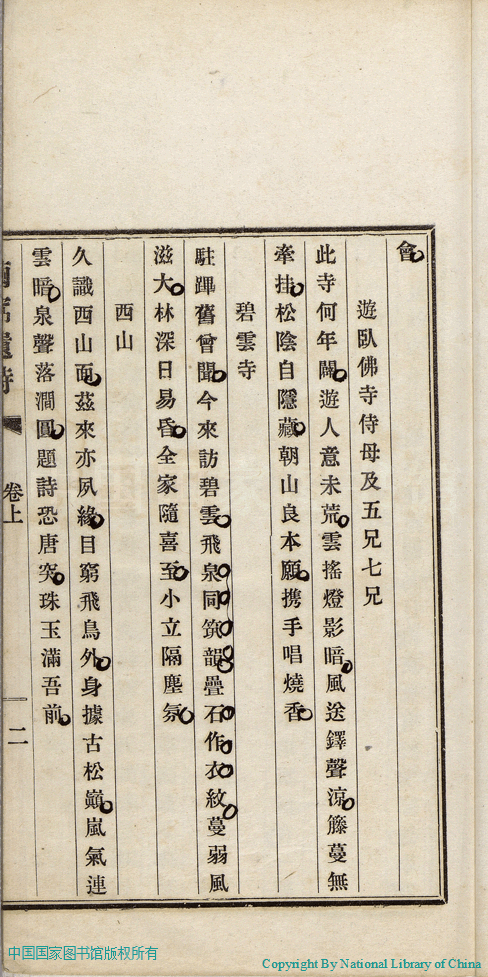 會
遊臥佛寺侍母及五兄七兄
此寺何年闢遊人意未荒雲搖燈影暗風送鐸聲涼籐蔓無
牽挂松陰自隱藏朝山良本願携手唱燒香
碧雲寺
駐蹕舊曾聞今來訪碧雲飛泉同筑韻疊石作衣紋蔓弱風
滋大林深日易昏全家隨喜至小立隔塵氛
西山
久識西山面茲來亦夙緣目窮飛鳥外身據古松巔嵐氣連
雲暗泉聲落澗圓題詩恐唐突珠玉滿吾前
卷上
二
中国国家图书馆版权所有
Copyright By National Library of China